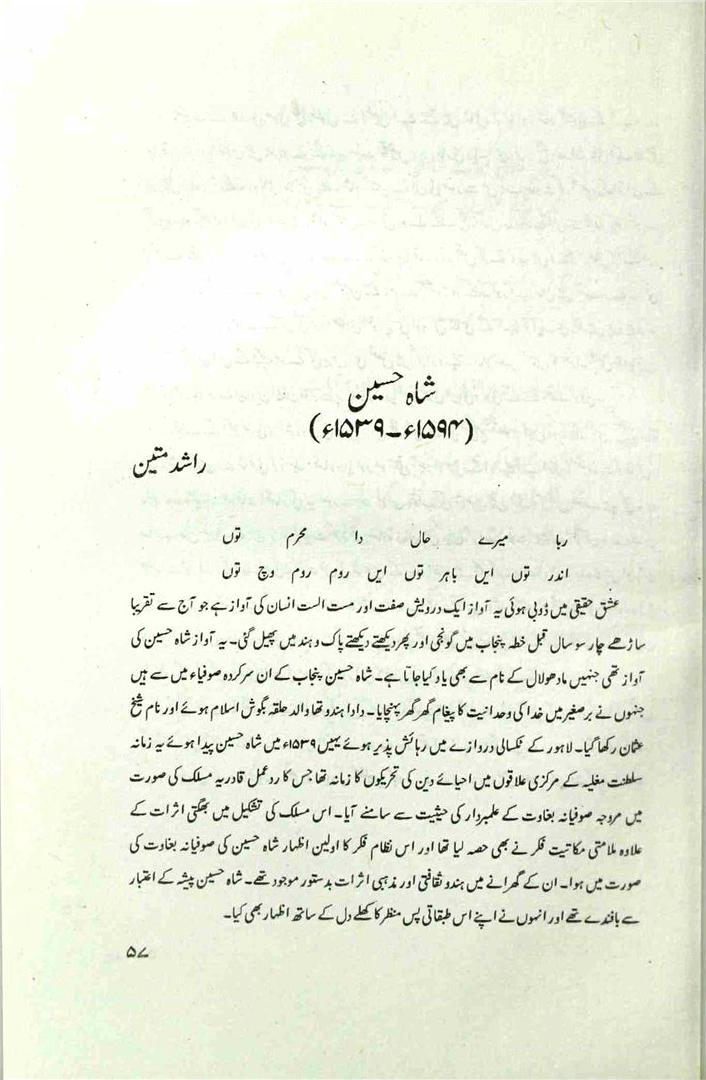 شاہ حسین
(۱۵۳۹ء۔۱۵۹۴ء)
راشد متین
ربا میرے حال دا محرم توں
اندر توں ایں باہر توں ایں روم روم وچ توں
عشق حقیقی میں ڈوبی ہوئی یہ آواز ایک درویش صفت اور مست الست انسان کی آواز ہے جو آج سے تقریبا
ساڑھے چار سو سال قبل خطہ پنجاب میں گونجی اور پھر دیکھتے دیکھتے پاک و ہند میں پھیل گئی۔ یہ آواز شاہ حسین کی
آواز تھی جنہیں مادھو لال کے نام سے بھی یاد کیا جاتا ہے۔ شاہ حسین پنجاب کے ان سرکردہ صوفیاء میں سے ہیں
جنہوں نے برصغیر میں خدا کی وحدانیت کا پیغام گھر گھر پہنچایا۔ دادا ہندو تھا والد حلقہ بگوش اسلام ہوئے اور نام شیخ
عثمان رکھا گیا۔ لاہور کے ٹکسالی دروازے میں رہائش پذیر ہوئے یہیں ۱۵۳۹ء میں شاہ حسین پیدا ہوئے یہ زمانہ
سلطنت مغلیہ کے مرکزی علاقوں میں احیائے دین کی تحریکوں کا زمانہ تھا جس کا رد عمل قادریہ مسلک کی صورت
میں مروجہ صوفیانہ بغاوت کے علمبردار کی حیثیت سے سامنے آیا۔ اس مسلک کی تشکیل میں بھگتی اثرات کے
علاوہ ملامتی مکاتیت فکر نے بھی حصہ لیا تھا اور اس نظام فکر کا اولین اظہار شاہ حسین کی صوفیانہ بغاوت کی
صورت میں ہوا۔ ان کے گھرانے میں ہندو ثقافتی اور مذہبی اثرات بدستور موجود تھے۔ شاہ حسین پیشہ کے اعتبار
سے بافندے تھے اور انہوں نے اپنے اس طبقاتی پس منظر کا کھلے دل کے ساتھ اظہار بھی کیا۔
۵۷